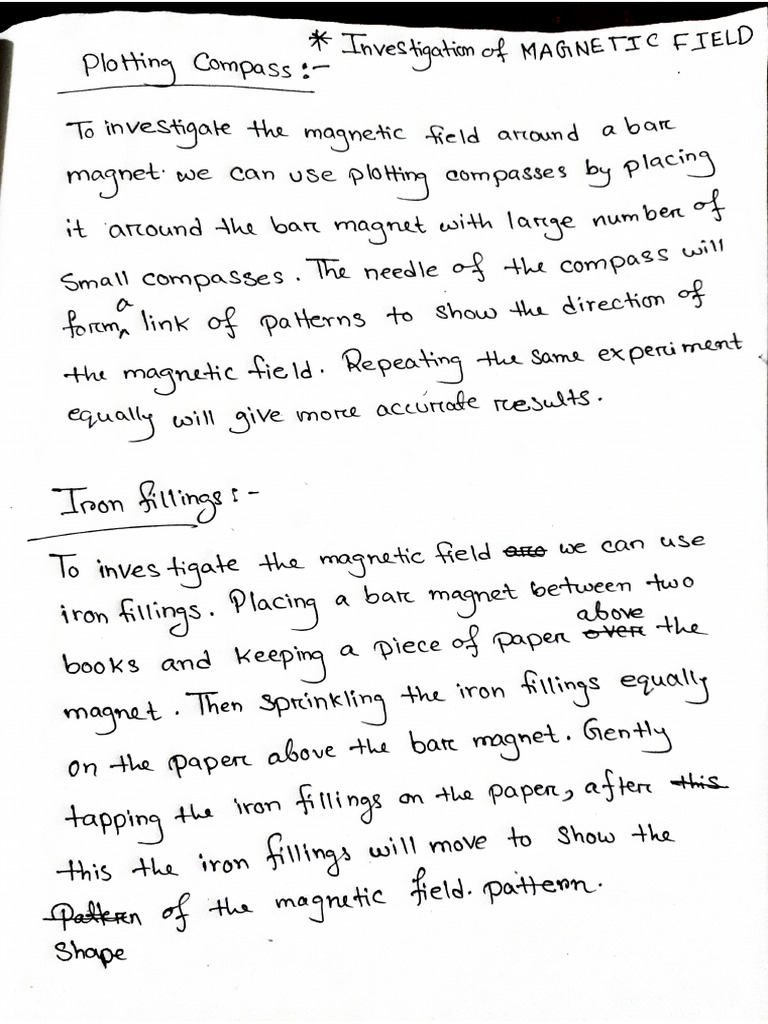 * Investigation of MAGNETIC FIELD
Plotting Compass :-
To investigate the magnetic field around a bar
magnet. we can use plotting compasses by placing
it around the bar magnet with large number of
Small compasses. The needle of the compass will
form a link of patterns to show the direction of
the magnetic field. Repeating the same experiment
equally will give more accurate results.
Iron fillings :-
To investigate the magnetic field are we can use
iron fillings. Placing a bar magnet between two
books and keeping a piece of paper over above the
magnet. Then sprinkling the iron fillings equally
on the paper above the bar magnet. Gently
tapping the iron fillings on the paper, after this
this the iron fillings will move to show the
Pattern of the magnetic field. pattern.
Shape